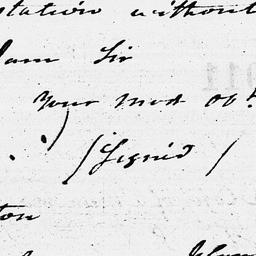 tation without
am Sir
Your most ob!
(Signed)
ton